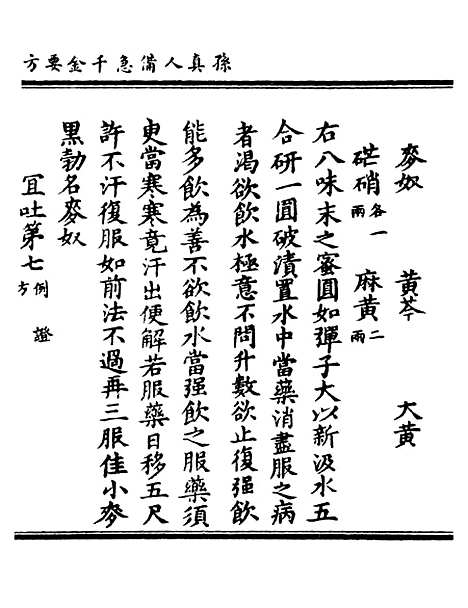 孫真人備急千金要方
麥奴　黃芩　大黃
硭硝各一兩　麻黃二兩
右八味末之蜜圓如彈子大以新汲水五
合研一圓破漬置水中當藥消盡服之病
者渴欲飲水極意不問升數欲止復强飲
能多飲為善不欲飲水當强飲之服藥須
更當寒寒竟汗出便解若服藥日移五尺
許不汗復服如前法不過再三服佳小麥
黑勃名麥奴
宜吐第七例方　證